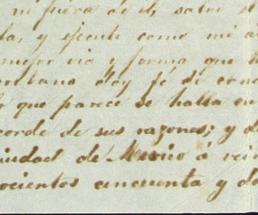 ni fuera de él, sobre
la, y ejecute como mi a
mejor via y forma que h
cribano doy fé de cono
lo que parece se halla en
corde de sus razones; y d
ciudad de Mexico a vein
ocientos cincuenta y do